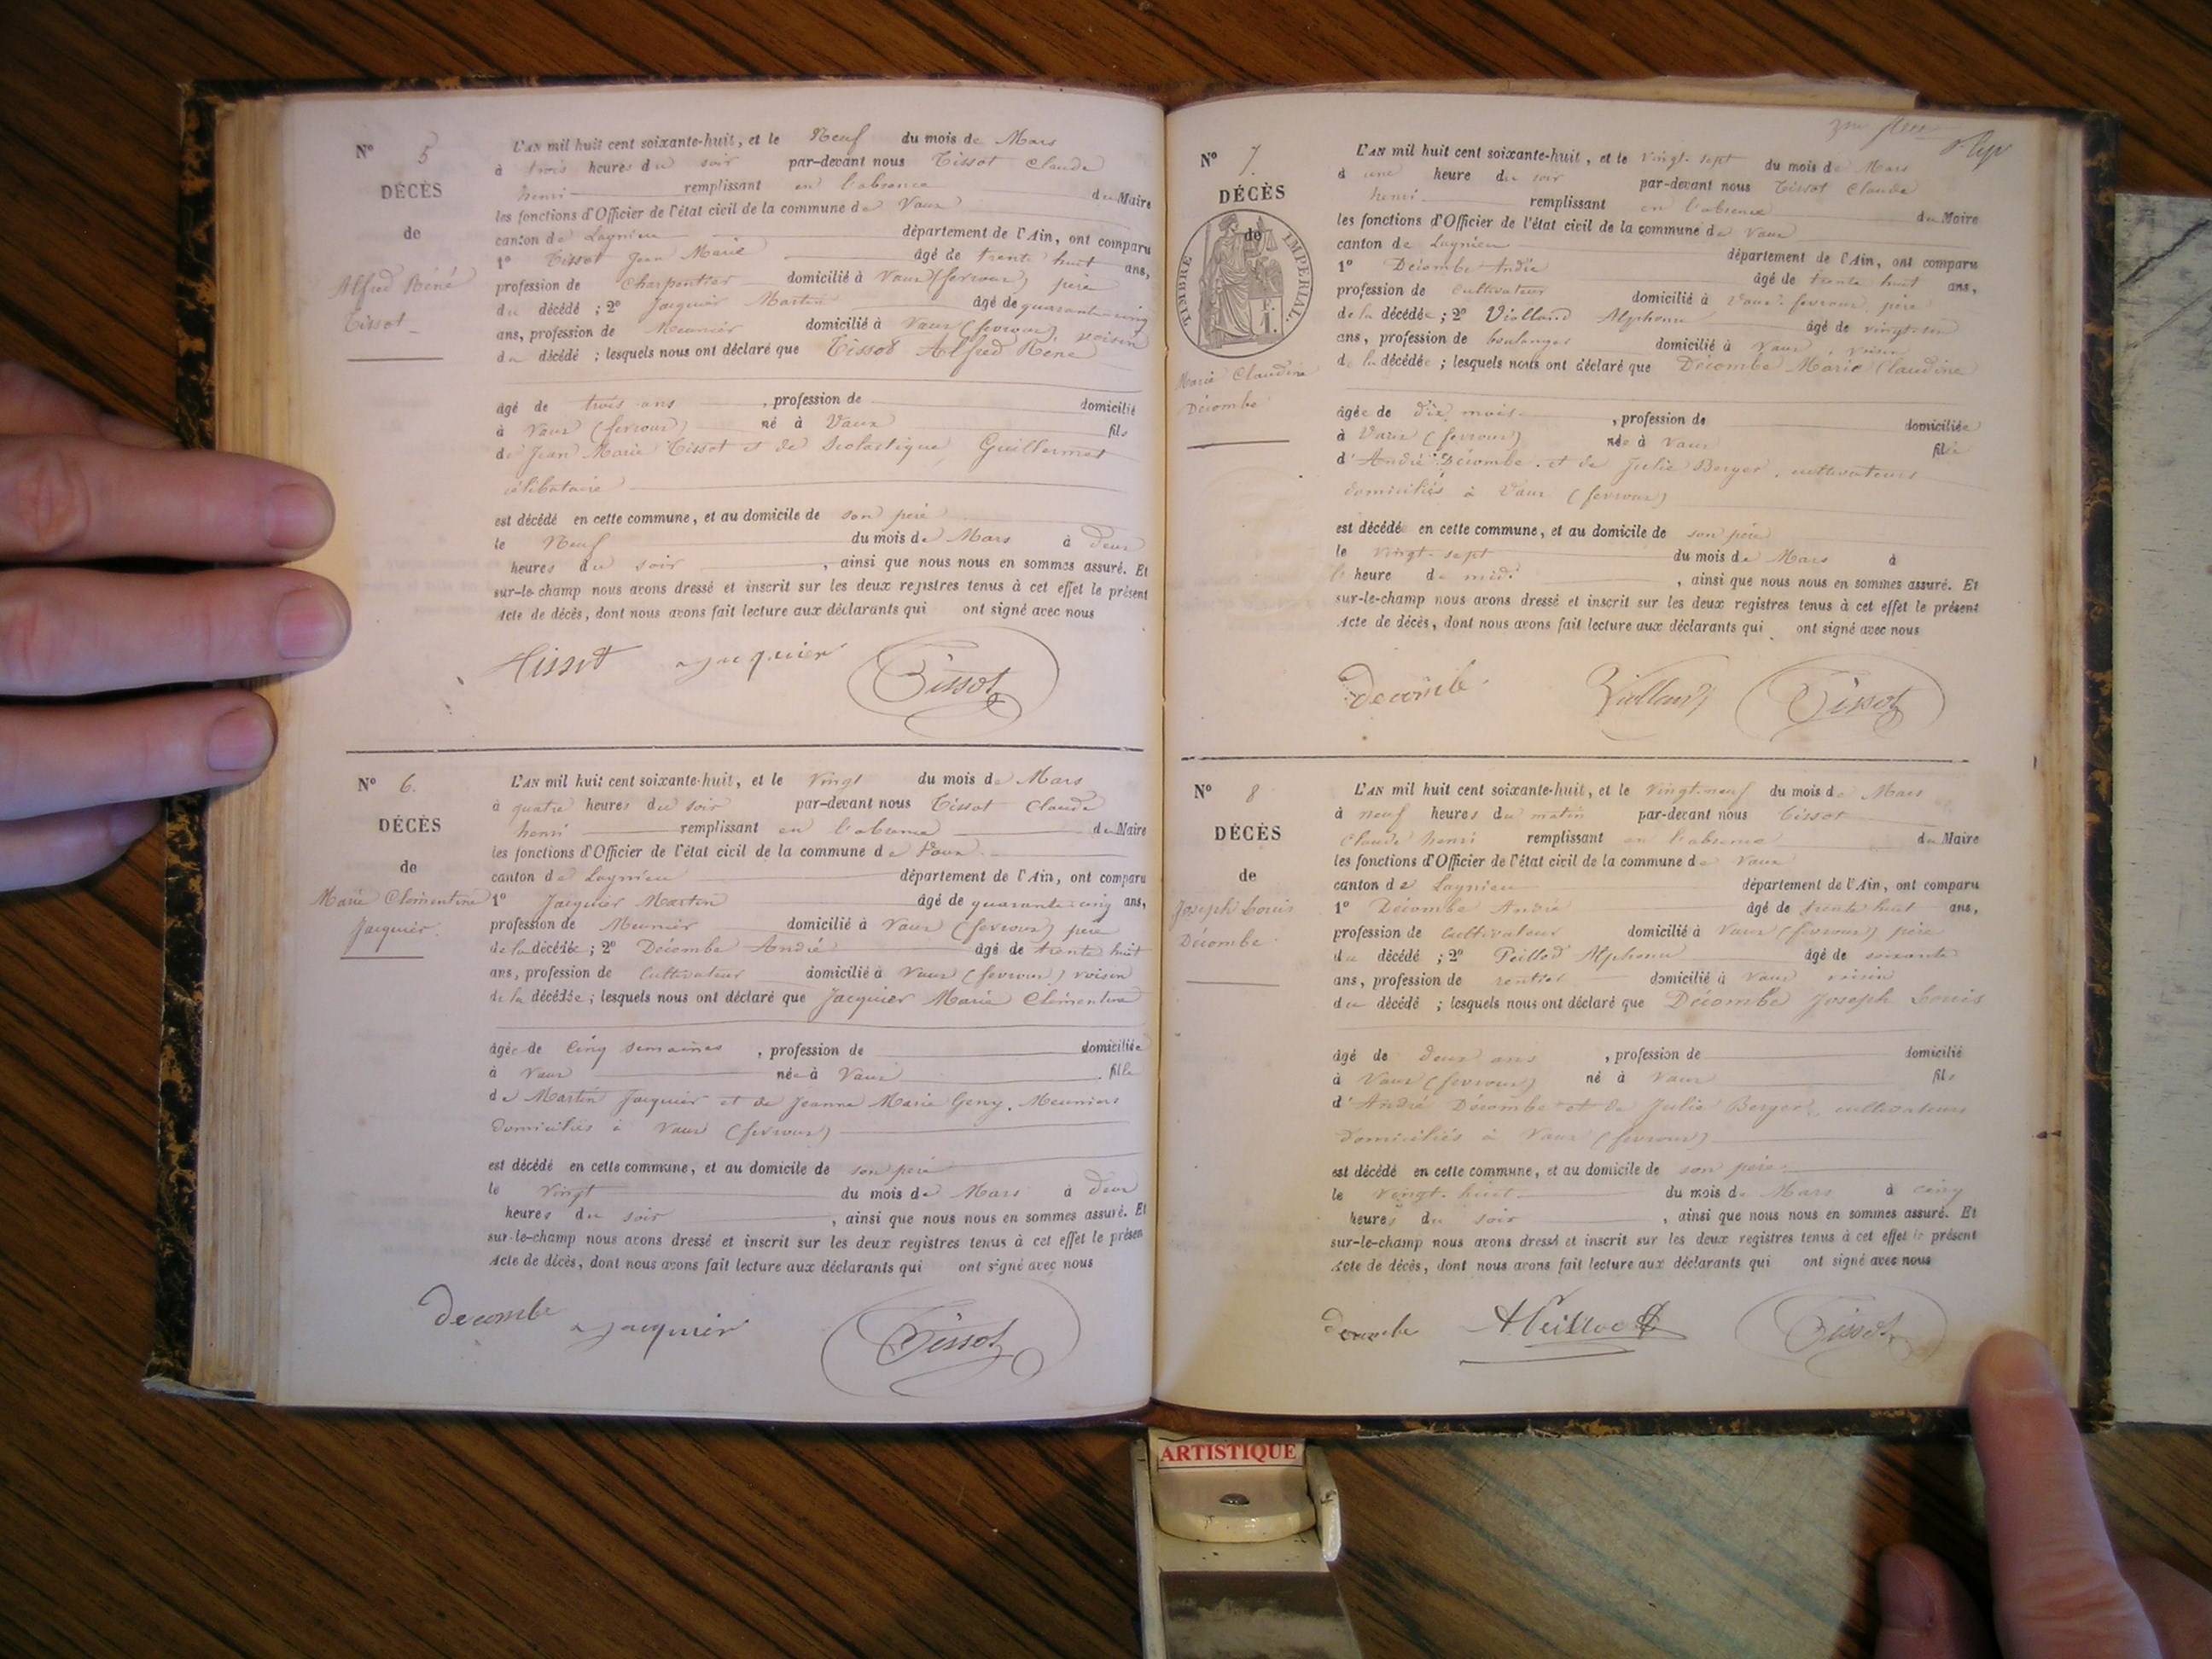 N° 5
DÉCÈS
de
Alfred Réné
Tissot
L'AN mil huit cent soixante-huit, et le Neuf du mois de Mars
à trois heures du soir par-devant nous Tissot Claude
henri remplissant en l'absence du Maire
les fonctions d'Officier de l'état civil de la commune de Vaux
canton de Lagnieu département de l'Ain, ont comparu
1° Tissot Jean Marie âgé de trente huit ans,
profession de Charpentier domicilié à Vaux (fevroux) père
du décédé ; 2° Jacquier Martin âgé de quarante cinq
ans, profession de Meunier domicilié à Vaux (fevroux) voisin
du décédé ; lesquels nous ont déclaré que Tissot Alfred Réné
âgé de trois ans , profession de domicilié
à Vaux (fevroux) né à Vaux fils
de Jean Marie Tissot et de Scolastique Guillermet
célibataire
est décédé en cette commune, et au domicile de son père
le Neuf du mois de Mars à deux
heures du soir , ainsi que nous nous en sommes assuré. Et
sur-le-champ nous avons dressé et inscrit sur les deux registres tenus à cet effet le présent
Acte de décès, dont nous avons fait lecture aux déclarants qui ont signé avec nous
Tissot jacquier Tissot
N° 6.
DÉCÈS
de
Marie Clémentine
Jacquier.
L'AN mil huit cent soixante-huit, et le Vingt du mois de Mars
à quatre heures du soir par-devant nous Tissot Claude
henri remplissant en l'absence du Maire
les fonctions d'Officier de l'état civil de la commune de Vaux
canton de Lagnieu département de l'Ain, ont comparu
1° Jacquier Martin âgé de quarante cinq ans,
profession de Meunier domicilié à Vaux (fevroux) père
de la décédée ; 2° Décombe André âgé de trente huit
ans, profession de Cultivateur domicilié à Vaux (fevroux) voisin
de la décédée ; lesquels nous ont déclaré que Jacquier Marie Clémentine
âgée de Cinq semaines , profession de domiciliée
à Vaux née à Vaux fille
de Martin Jacquier et de Jeanne Marie Geny, Meuniers
domiciliés à Vaux (fevroux)
est décédé en cette commune, et au domicile de son père
le Vingt du mois de Mars à deux
heures du soir , ainsi que nous nous en sommes assuré. Et
sur-le-champ nous avons dressé et inscrit sur les deux registres tenus à cet effet le présen
Acte de décès, dont nous avons fait lecture aux déclarants qui ont signé avec nous
decombe jacquier Tissot
N° 7.
DÉCÈS
de
TIMBRE IMPERIAL.
F.
1.
Marie Claudine
Décombe
L'AN mil huit cent soixante-huit, et le vingt-sept du mois de Mars
à une heure du soir par-devant nous Tissot Claude
henri remplissant en l'absence du Maire
les fonctions d'Officier de l'état civil de la commune de Vaux
canton de Lagnieu département de l'Ain, ont comparu
1° Décombe André âgé de trente huit ans,
profession de Cultivateur domicilié à Vaux fevroux, père
de la décédée ; 2° Violland Alphonse âgé de vingt-
ans, profession de boulanger domicilié à Vaux, voisin
de la décédée ; lesquels nous ont déclaré que Décombe Marie Claudine
âgée de dix mois , profession de domiciliée
à Vaux (fevroux) née à Vaux fille
d'André Décombe et de Julie Berger, cultivateurs
domiciliés à Vaux (fevroux)
est décédé en cette commune, et au domicile de son père
le vingt-sept du mois de Mars à
l'heure de midi , ainsi que nous nous en sommes assuré. Et
sur-le-champ nous avons dressé et inscrit sur les deux registres tenus à cet effet le présent
Acte de décès, dont nous avons fait lecture aux déclarants qui ont signé avec nous
decombe Violland Tissot
N° 8
DÉCÈS
de
Joseph Louis
Décombe
L'AN mil huit cent soixante-huit, et le vingt-neuf du mois de Mars
à neuf heures du matin par-devant nous Tissot
Claude henri remplissant en l'absence du Maire
les fonctions d'Officier de l'état civil de la commune de Vaux
canton de Lagnieu département de l'Ain, ont comparu
1° Décombe André âgé de trente huit ans,
profession de Cultivateur domicilié à Vaux (fevroux) père
du décédé ; 2° Peillod Alphonse âgé de soixante
ans, profession de rentier domicilié à Vaux voisin
du décédé ; lesquels nous ont déclaré que Décombe Joseph Louis
âgé de deux ans , profession de domicilié
à Vaux (fevroux) né à Vaux fils
d'André Décombe et de Julie Berger, cultivateurs
domiciliés à Vaux (fevroux)
est décédé en cette commune, et au domicile de son père
le vingt-huit du mois de Mars à cinq
heures du soir , ainsi que nous nous en sommes assuré. Et
sur-le-champ nous avons dressé et inscrit sur les deux registres tenus à cet effet le présent
Acte de décès, dont nous avons fait lecture aux déclarants qui ont signé avec nous
decombe APeillod Tissot
ARTISTIQUE